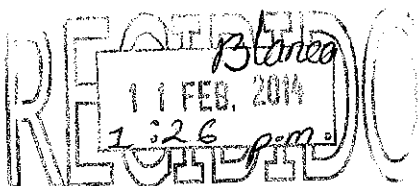 RECIBIDO
Blanca
11 FEB. 2014
1:26 p.m.